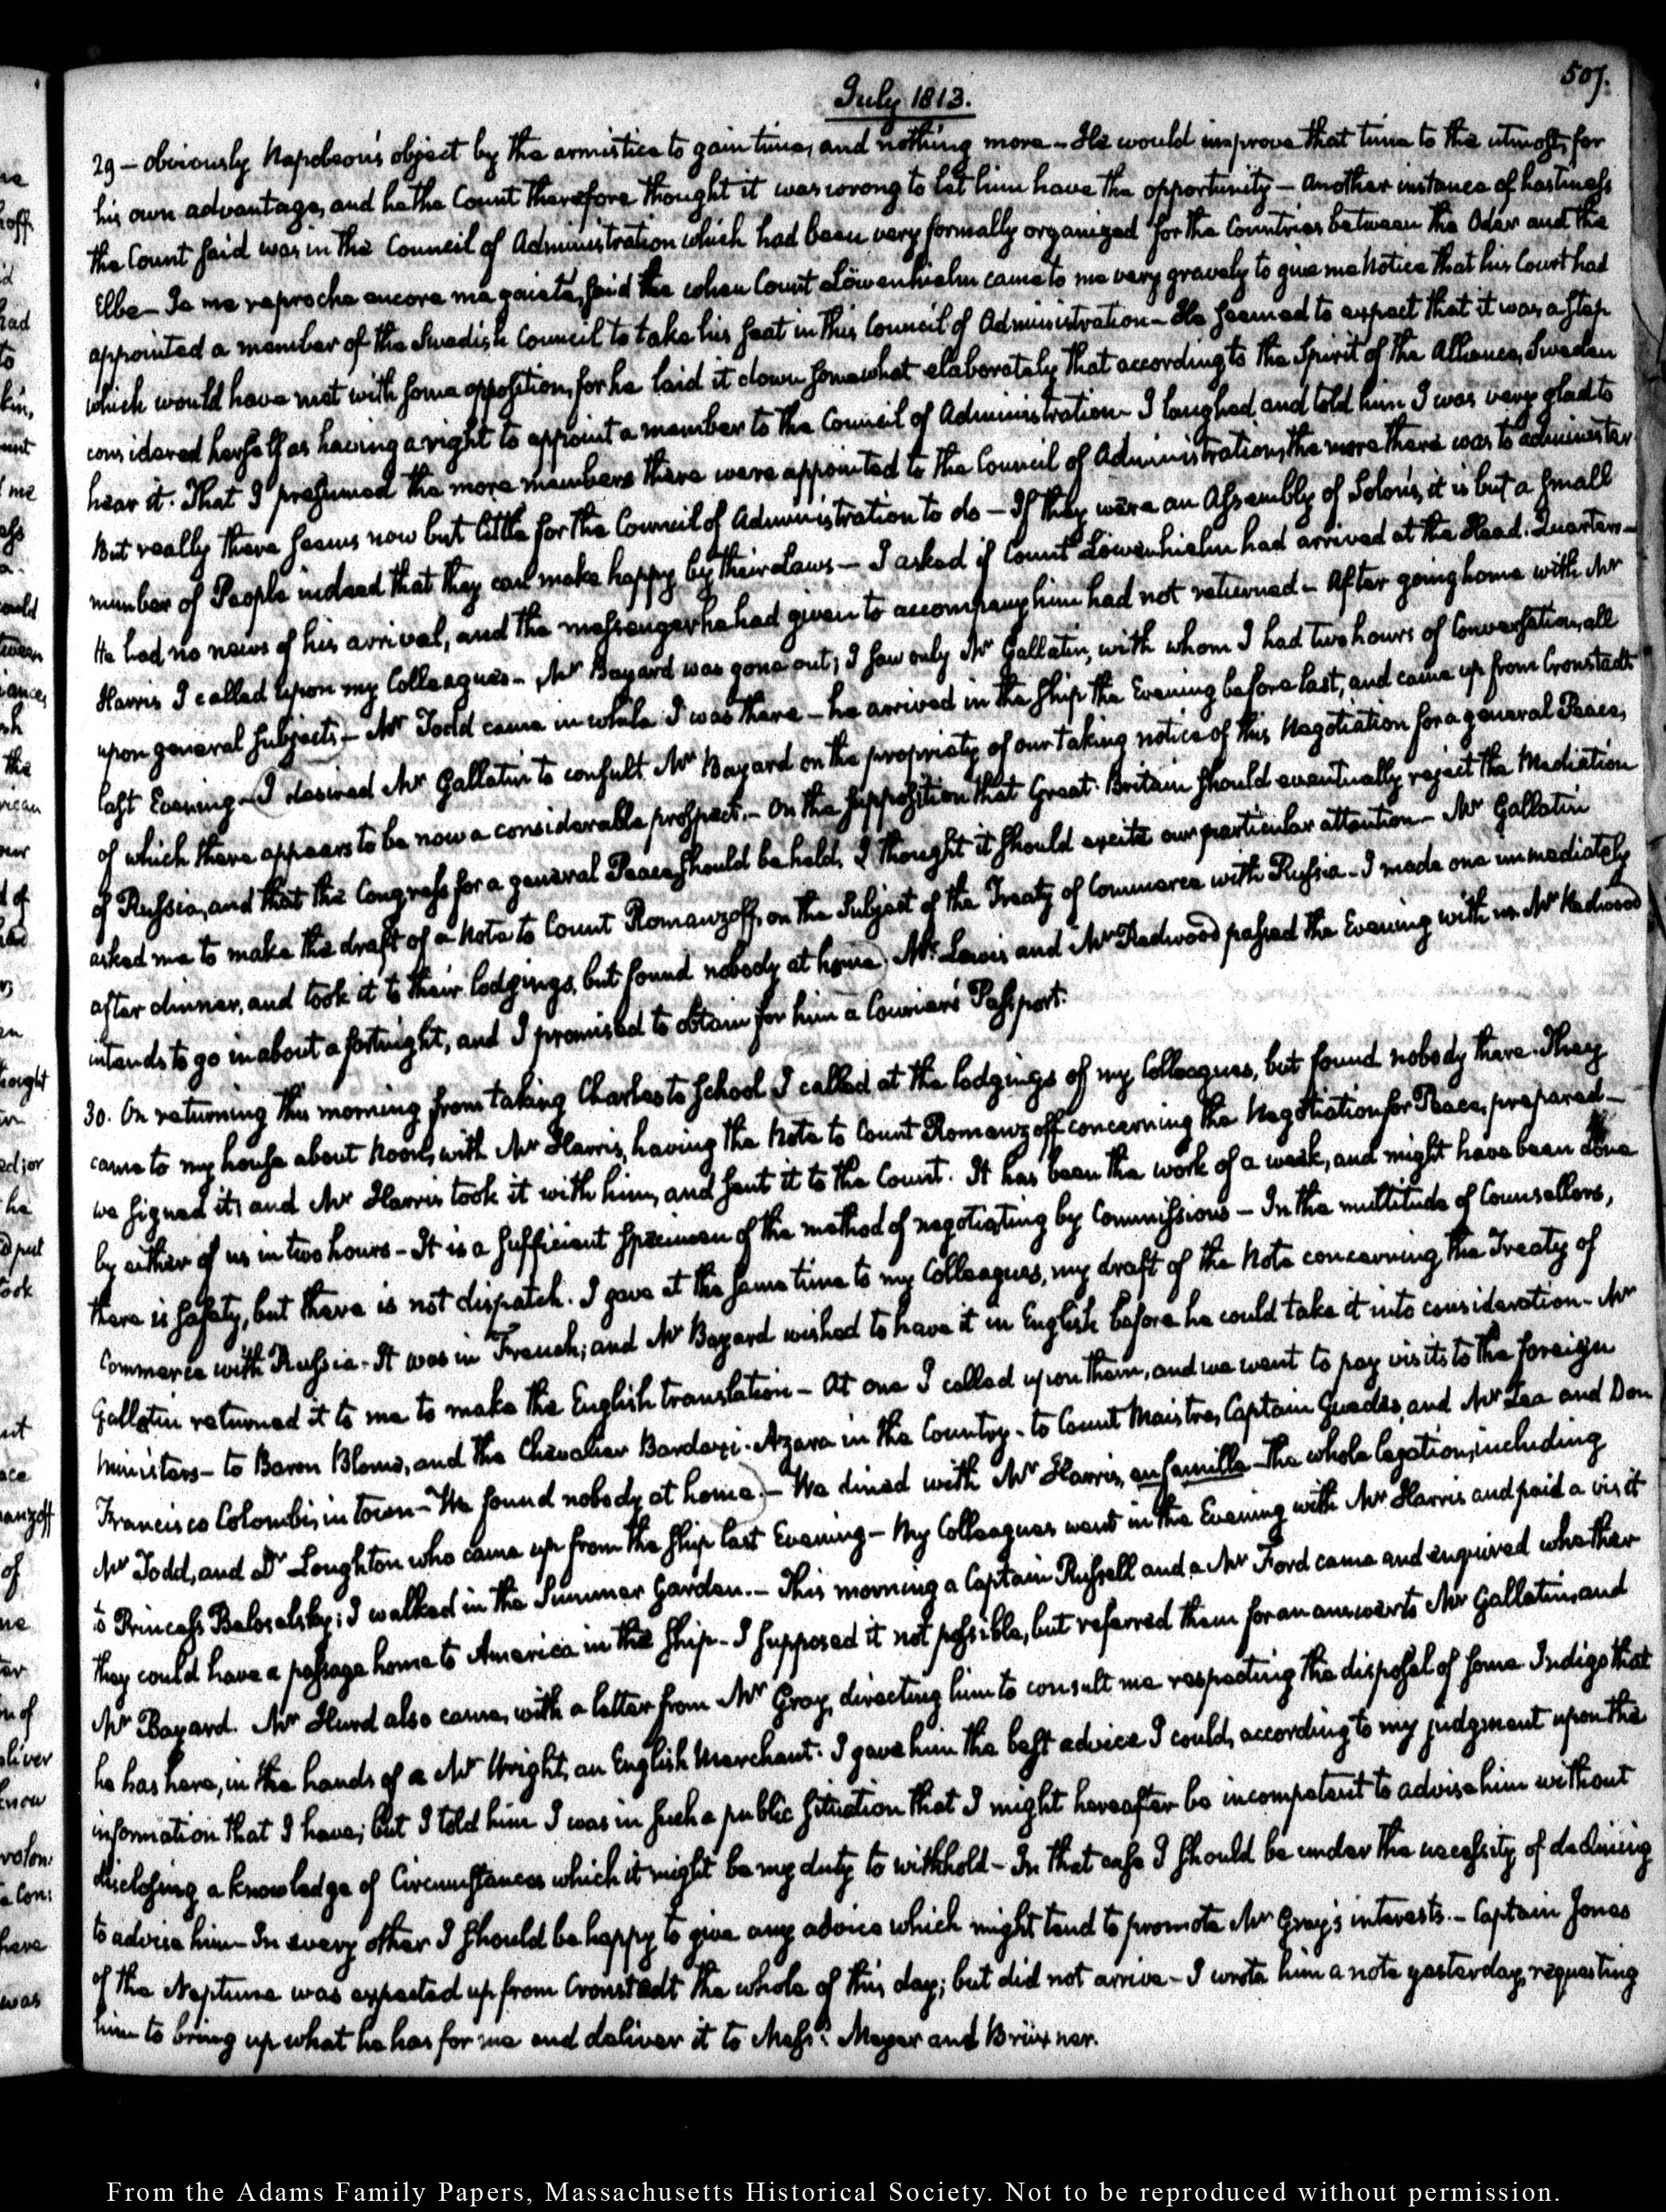 507.
July 1813.
29 — obviously Napoleon's object by the armistice to gain time, and nothing more — He would improve that time to the utmost, for
his own advantage, and he the Count therefore thought it was wrong to let him have the opportunity — Another instance of hastiness
the Count said was in the Council of Administration which had been very formally organized for the Countries between the Oder and the
Elbe — Je me reproche encore ma gaieté, said he when Count Löwenhielm came to me very gravely to give me Notice that his Court had
appointed a member of the Swedish Council to take his seat in this Council of Administration — He seemed to expect that it was a step
which would have met with some opposition, for he laid it down somewhat elaborately that according to the Spirit of the Alliance, Sweden
considered herself as having a right to appoint a member to the Council of Administration — I laughed and told him I was very glad to
hear it. That I presumed the more members there were appointed to the Council of Administration, the more there was to administer
But really there seems now but little for the Council of Administration to do — If they were an Assembly of Solons, it is but a small
number of People indeed that they can make happy by their Laws — I asked if Count Löwenhielm had arrived at the Head-Quarters —
He had no news of his arrival, and the messenger he had given to accompany him had not returned — After going home with Mr
Harris I called upon my Colleagues — Mr Bayard was gone out; I saw only Mr Gallatin, with whom I had two hours of Conversation, all
upon general subjects — Mr Todd came in while I was there — he arrived in the ship the Evening before last, and came up from Cronstadt
last Evening — I desired Mr Gallatin to consult Mr Bayard on the propriety of our taking notice of this Negotiation for a general Peace,
of which there appears to be now a considerable prospect. — On the supposition that Great-Britain should eventually reject the Mediation
of Russia, and that the Congress for a general Peace should be held, I thought it should excite our particular attention — Mr Gallatin
asked me to make the draft of a Note to Count Romanzoff, on the Subject of the Treaty of Commerce with Russia — I made one immediately
after dinner, and took it to their lodgings, but found nobody at home. Mr Lewis and Mr Redwood passed the Evening with us. Mr Redwood
intends to go in about a fortnight, and I promised to obtain for him a Courier's Passport.
30. On returning this morning from taking Charles to School I called at the lodgings of my Colleagues, but found nobody there. They
came to my house about Noon, with Mr Harris, having the Note to Count Romanzoff concerning the Negotiation for Peace, prepared —
we signed it, and Mr Harris took it with him, and sent it to the Count. It has been the work of a week, and might have been done
by either of us in two hours — It is a sufficient specimen of the method of negotiating by Commissions — In the multitude of Counsellors,
there is safety, but there is not dispatch. I gave at the same time to my Colleagues, my draft of the Note concerning the Treaty of
Commerce with Russia. It was in French; and Mr Bayard wished to have it in English before he could take it into consideration — Mr
Gallatin returned it to me to make the English translation — At one I called upon them, and we went to pay visits to the foreign
Ministers — to Baron Blome, and the Chevalier Bardaxi-Azara in the Country — to Count Maistre, Captain Guedes, and Mr Zea and Don
Francisco Colombi, in town — We found nobody at home. — We dined with Mr Harris, en famille — The whole legation, including
Mr Todd, and Dr Loughton who came up from the ship last Evening — My Colleagues went in the Evening with Mr Harris and paid a visit
to Princess Beloselsky; I walked in the Summer Garden. — This morning a Captain Russell and a Mr Ford came and enquired whether
they could have a passage home to America in the ship — I supposed it not possible, but referred them for an answer to Mr Gallatin, and
Mr Bayard. Mr Hurd also came, with a letter from Mr Gray, directing him to consult me respecting the disposal of some Indigo that
he has here, in the hands of a Mr Wright, an English Merchant. I gave him the best advice I could, according to my judgment upon the
information that I have; but I told him I was in such a public situation that I might hereafter be incompetent to advise him without
disclosing a knowledge of Circumstances which it might be my duty to withhold — In that case I should be under the necessity of declining
to advise him — In every other I should be happy to give any advice which might tend to promote Mr Gray's interests. — Captain Jones
of the Neptune was expected up from Cronstadt the whole of this day; but did not arrive — I wrote him a note yesterday, requesting
him to bring up what he has for me and deliver it to Messrs Meyer and Brüxner.
From the Adams Family Papers, Massachusetts Historical Society. Not to be reproduced without permission.